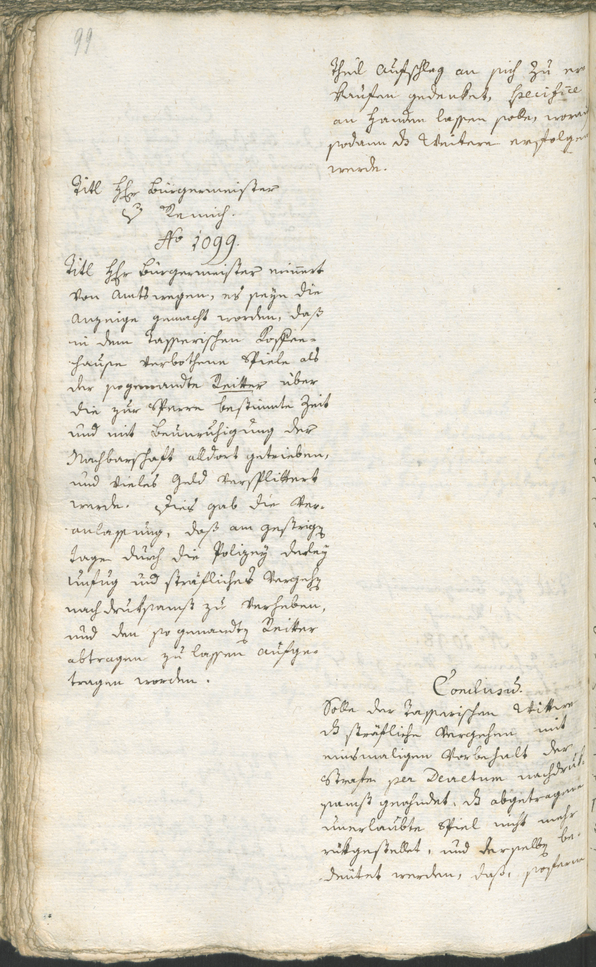 99
Theil Aufschlag an sich zu er-
kaufen gedenket, specifice
an Handen lassen solle, worauf
sodann dz Weitere erfolgen
werde.
Titl Hhr Bürgermeister
v Remich.
No 1099.
Titl Hhr Bürgermeister erinnert
von Amtswegen, es seyn die
Anzeige gemacht worden, daß
in dem Tasserischen Koffee-
hause verbothene Spiele als
der sogenandte Reiter über
die zur Sperre bestimte Zeit
und mit Beunruhigung der
Nachbarschaft alldort getrieben,
und vieles Geld versplittert
werde. Dies gab die Ver-
anlassung, daß am gestrig
Tage durch die Polizey derley
Unfug und sträfliches Vergeh
nachdruksamst zu verheben,
und den so genandt Reiter
abtragen zu lassen aufge-
tragen worden.
Conclusum.
Solle der Tasserischen Wittwe
dz sträfliche Vergehen mit
einsmaligen Vorbehalt der
Strafe per Decretum nachdruk-
samst geahndet, dz abgetragene
unerlaubte Spiel nicht mehr
rükgestellet, und derselb be-
deutet werden, daß, soferne